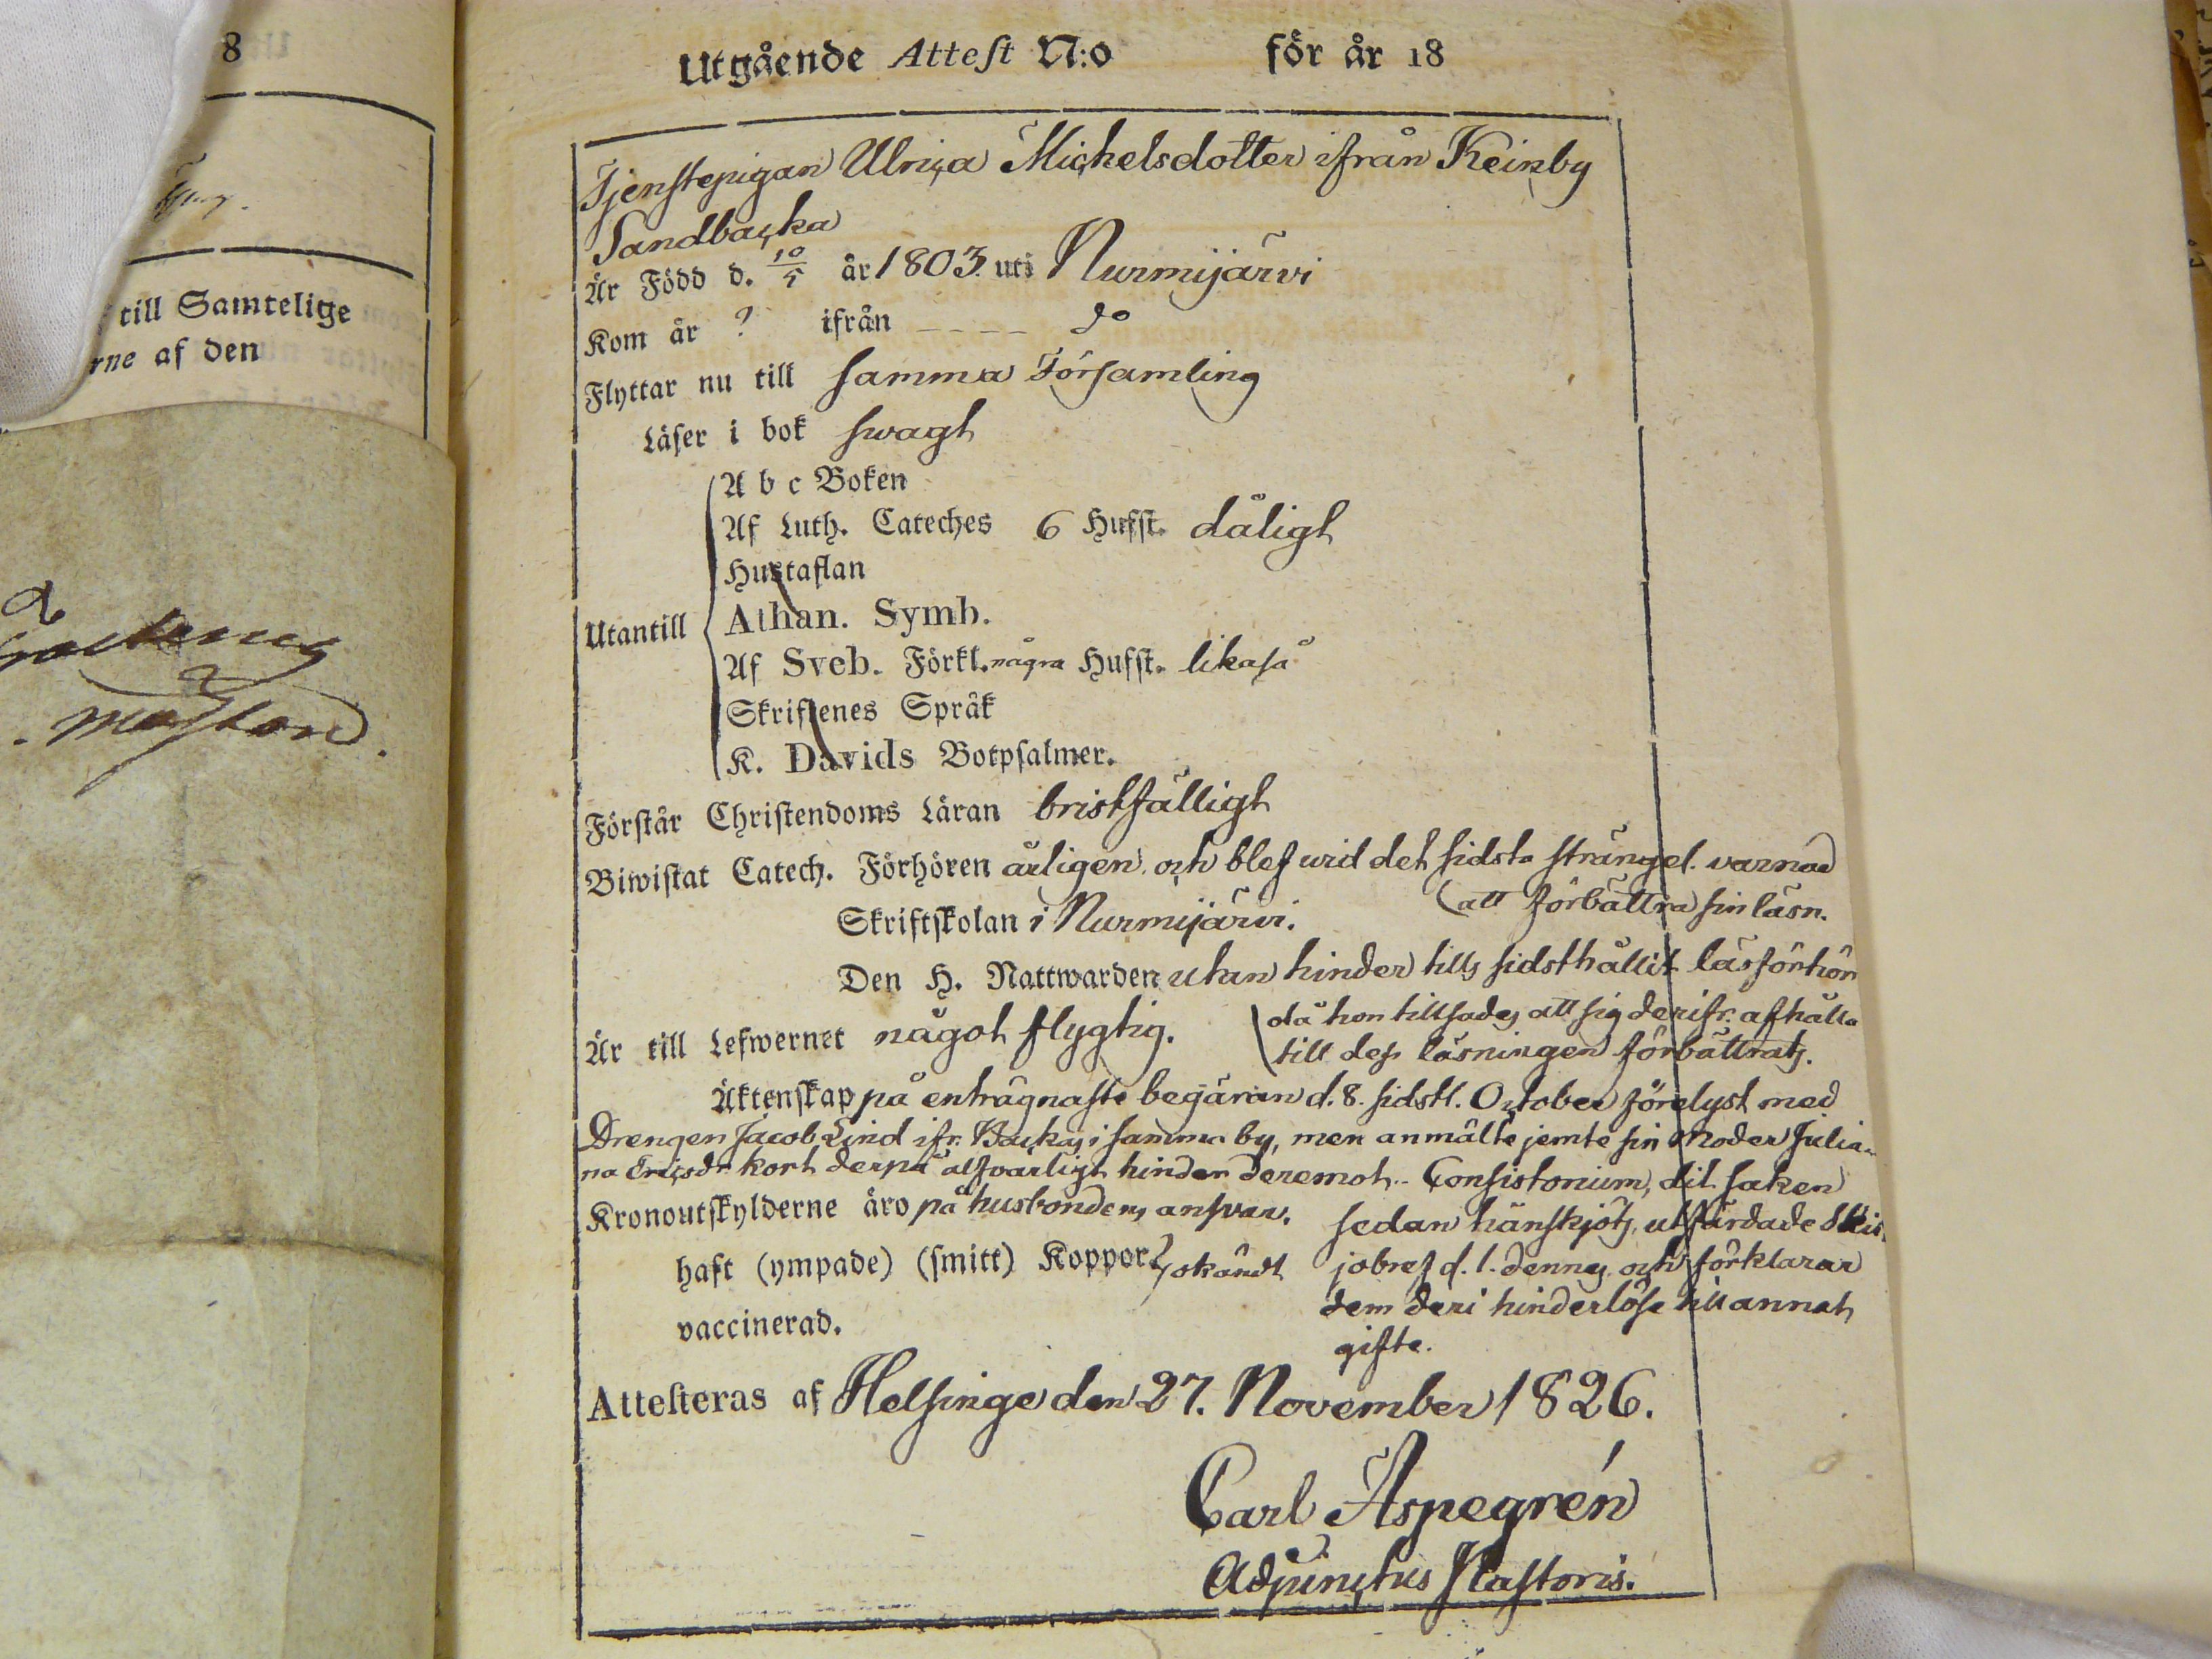 8
till Samtelige
rne af den
Utgående Attest N:o för år 18
Tjenstepigan Ulrica Michelsdotter ifrån Keinby
Sandbacka
Är Född d. 10/5 år 1803. uti Nurmijärvi
Kom år ? ifrån - - - - do
Flyttar nu till samma Församling
Läser i bok swagt
A b c Boken
Af Luth. Cateches 6 Hufst. dåligt
Hustaflan
Utantill
Athan. Symb.
Af Sveb. Förkl. några Hufst. likaså
Skriftenes Språk
K. Davids Botpsalmer.
Förstår Christendoms Läran bristfälligt
Biwistat Catech. Förhören årligen, och blef wid det sidsta strängel. varnad
(att förbättra sin läsn.
Skriftskolan i Nurmijärvi.
Den H. Nattwarden utan hinder tills sidsthållit läsförhör
då hon tillsades att sig derifr. afhålla
Är till Lefwernet något flygtig.
till dess läsningen förbättrats.
Äktenskap på enträgnaste begäran d. 8. sidstl. October förelyst med
Drengen Jacob Lind ifr. Backas i samma by, men anmälte jemte sin Moder Julia-
na Ericsdr kort derpå alfvarligt hinder deremot. - Consistorium, dit saken
Kronoutskylderne äro på husbondens answar. sedan hänskjöts, utfärdade Skil-
haft (ympade) (smitt) Koppor? okändt jobref d. 1. dennes och förklarar
dem deri hinderlöse till annat
vaccinerad.
gifte.
Attesteras af Helsinge den 27. November 1826.
Carl Aspegrén
Adjunctus Pastoris.